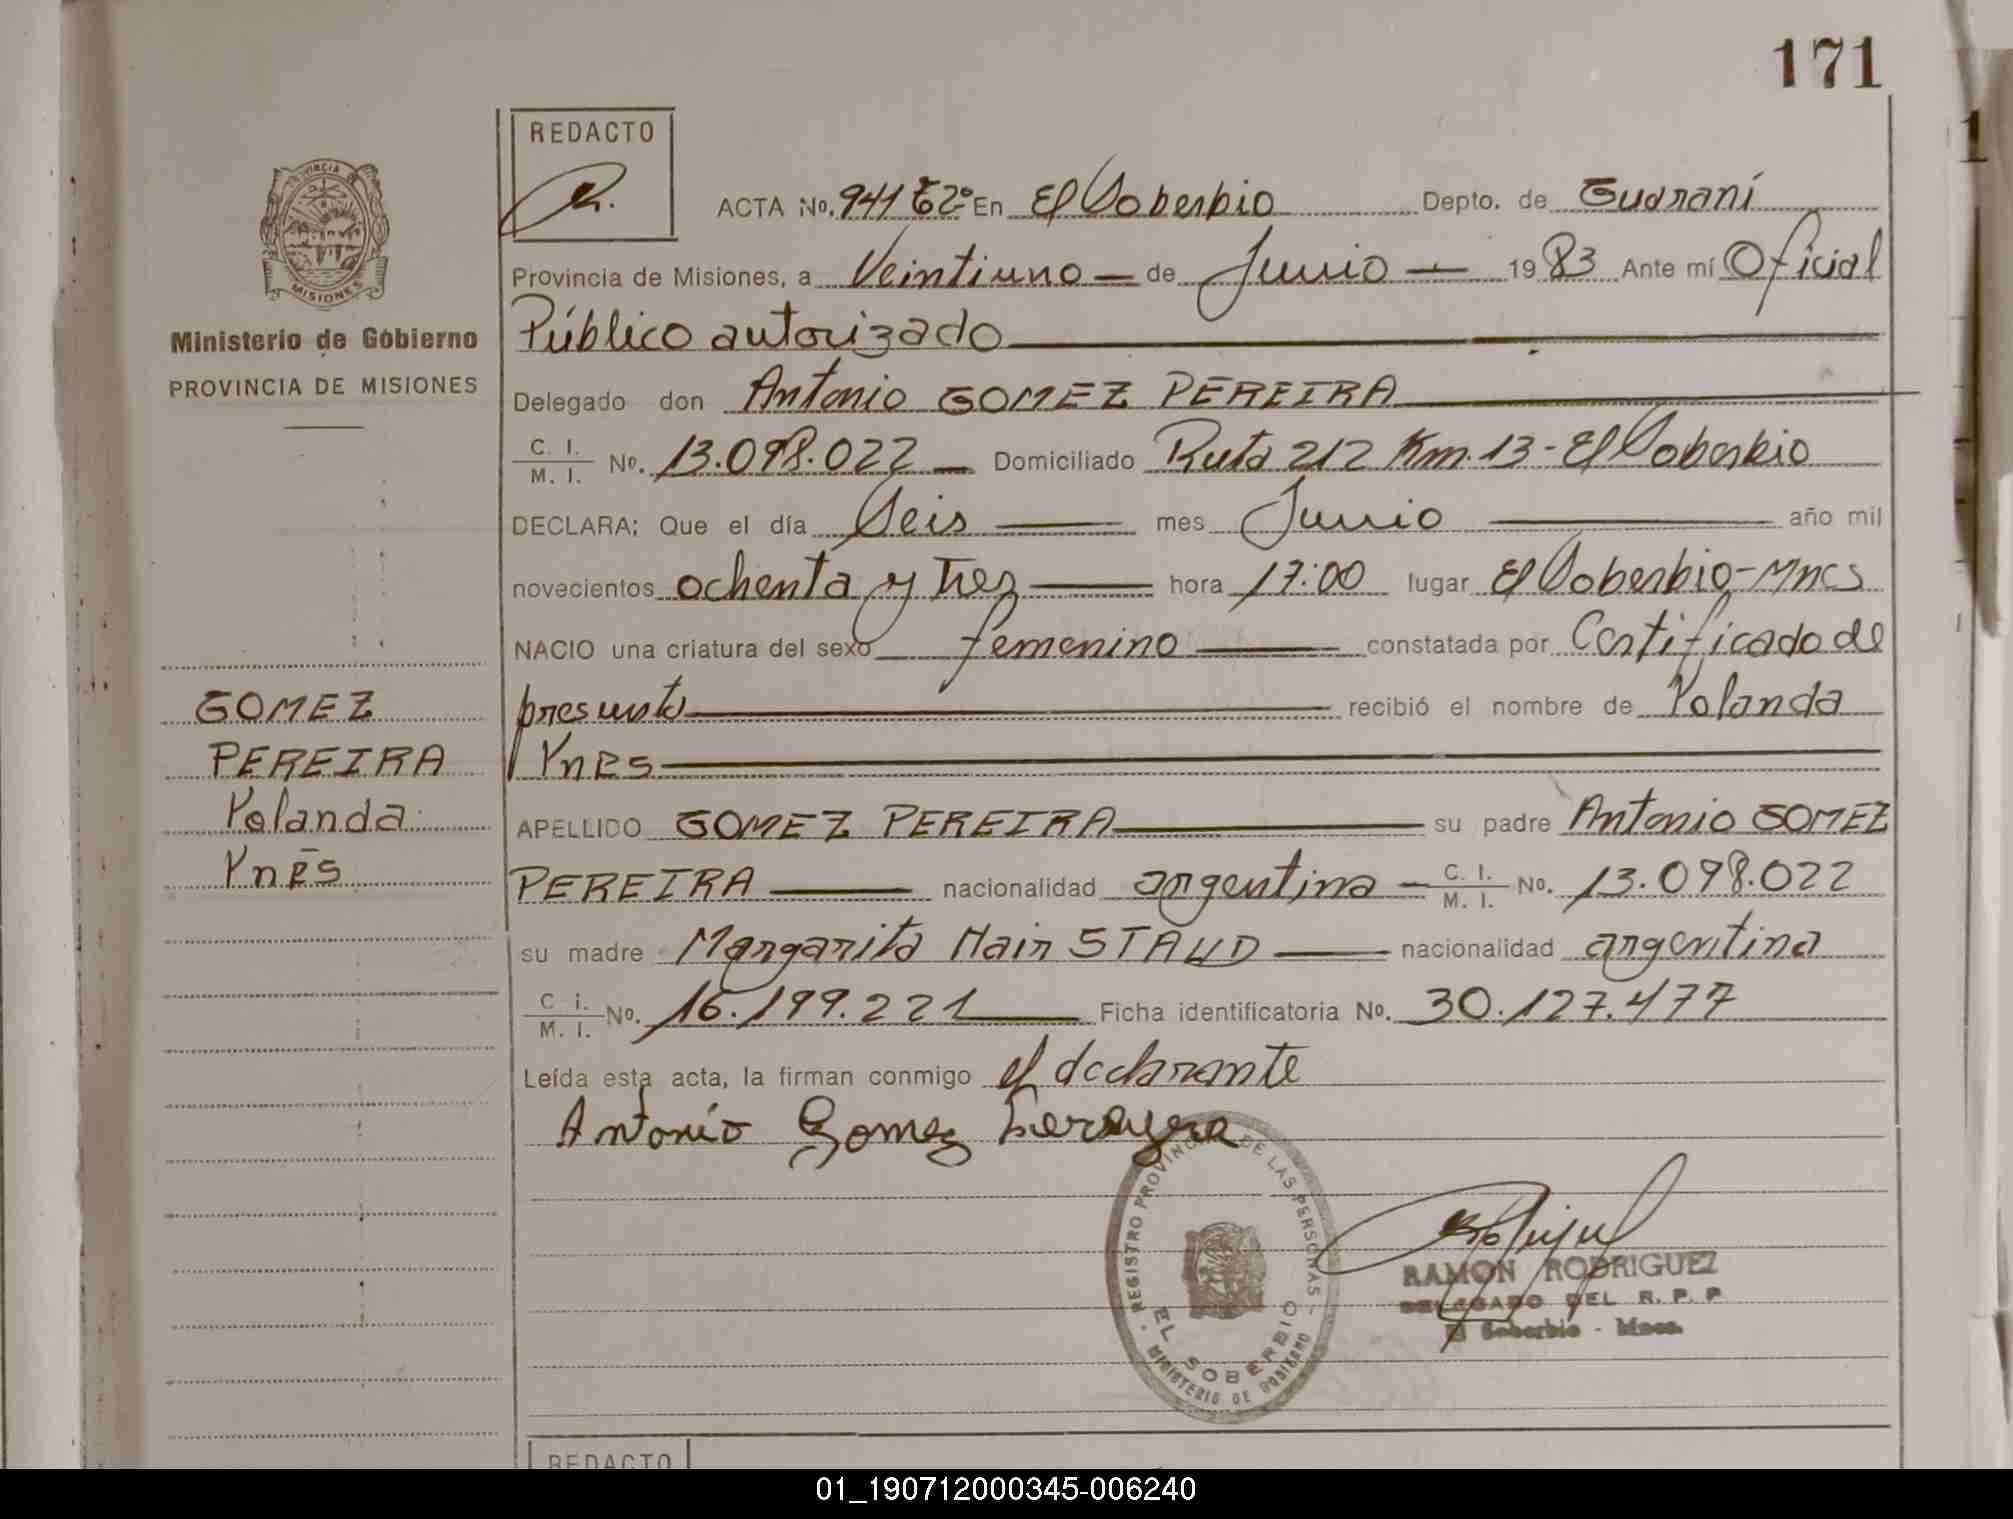 171
REDACTO
PROVINCIA DE MISIONES
ACTA No. 941 Tº2º En El Soberbio Depto. de Guaraní
Provincia de Misiones, a Veintiuno — de Junio — 1983 Ante mí Oficial
Público autorizado
Ministerio de Gobierno
PROVINCIA DE MISIONES
Delegado don Antonio GOMEZ PEREIRA
C. I. / M. I. No. 13.098.022 — Domiciliado Ruta 212 Km. 13 - El Soberbio
DECLARA; Que el día Seis — mes Junio — año mil
novecientos ochenta y tres — hora 17:00 lugar El Soberbio-Mnes
NACIO una criatura del sexo femenino — constatada por Certificado de
presunto — recibió el nombre de Yolanda
Ynes
GOMEZ
PEREIRA
Yolanda
Ynés
APELLIDO GOMEZ PEREIRA — su padre Antonio GOMEZ
PEREIRA — nacionalidad argentina — C. I. / M. I. No. 13.098.022
su madre Margarita Nair STAUD — nacionalidad argentina
C. i. / M. I. No. 16.199.221 — Ficha identificatoria No. 30.127.477
Leída esta acta, la firman conmigo el declarante
Antonio Gomez Pereyra
REGISTRO PROVINCIAL DE LAS PERSONAS - MINISTERIO DE GOBIERNO
EL SOBERBIO
RAMON RODRIGUEZ
DELEGADO DEL R. P. P
El Soberbio - Mnes.
REDACTO
01_190712000345-006240